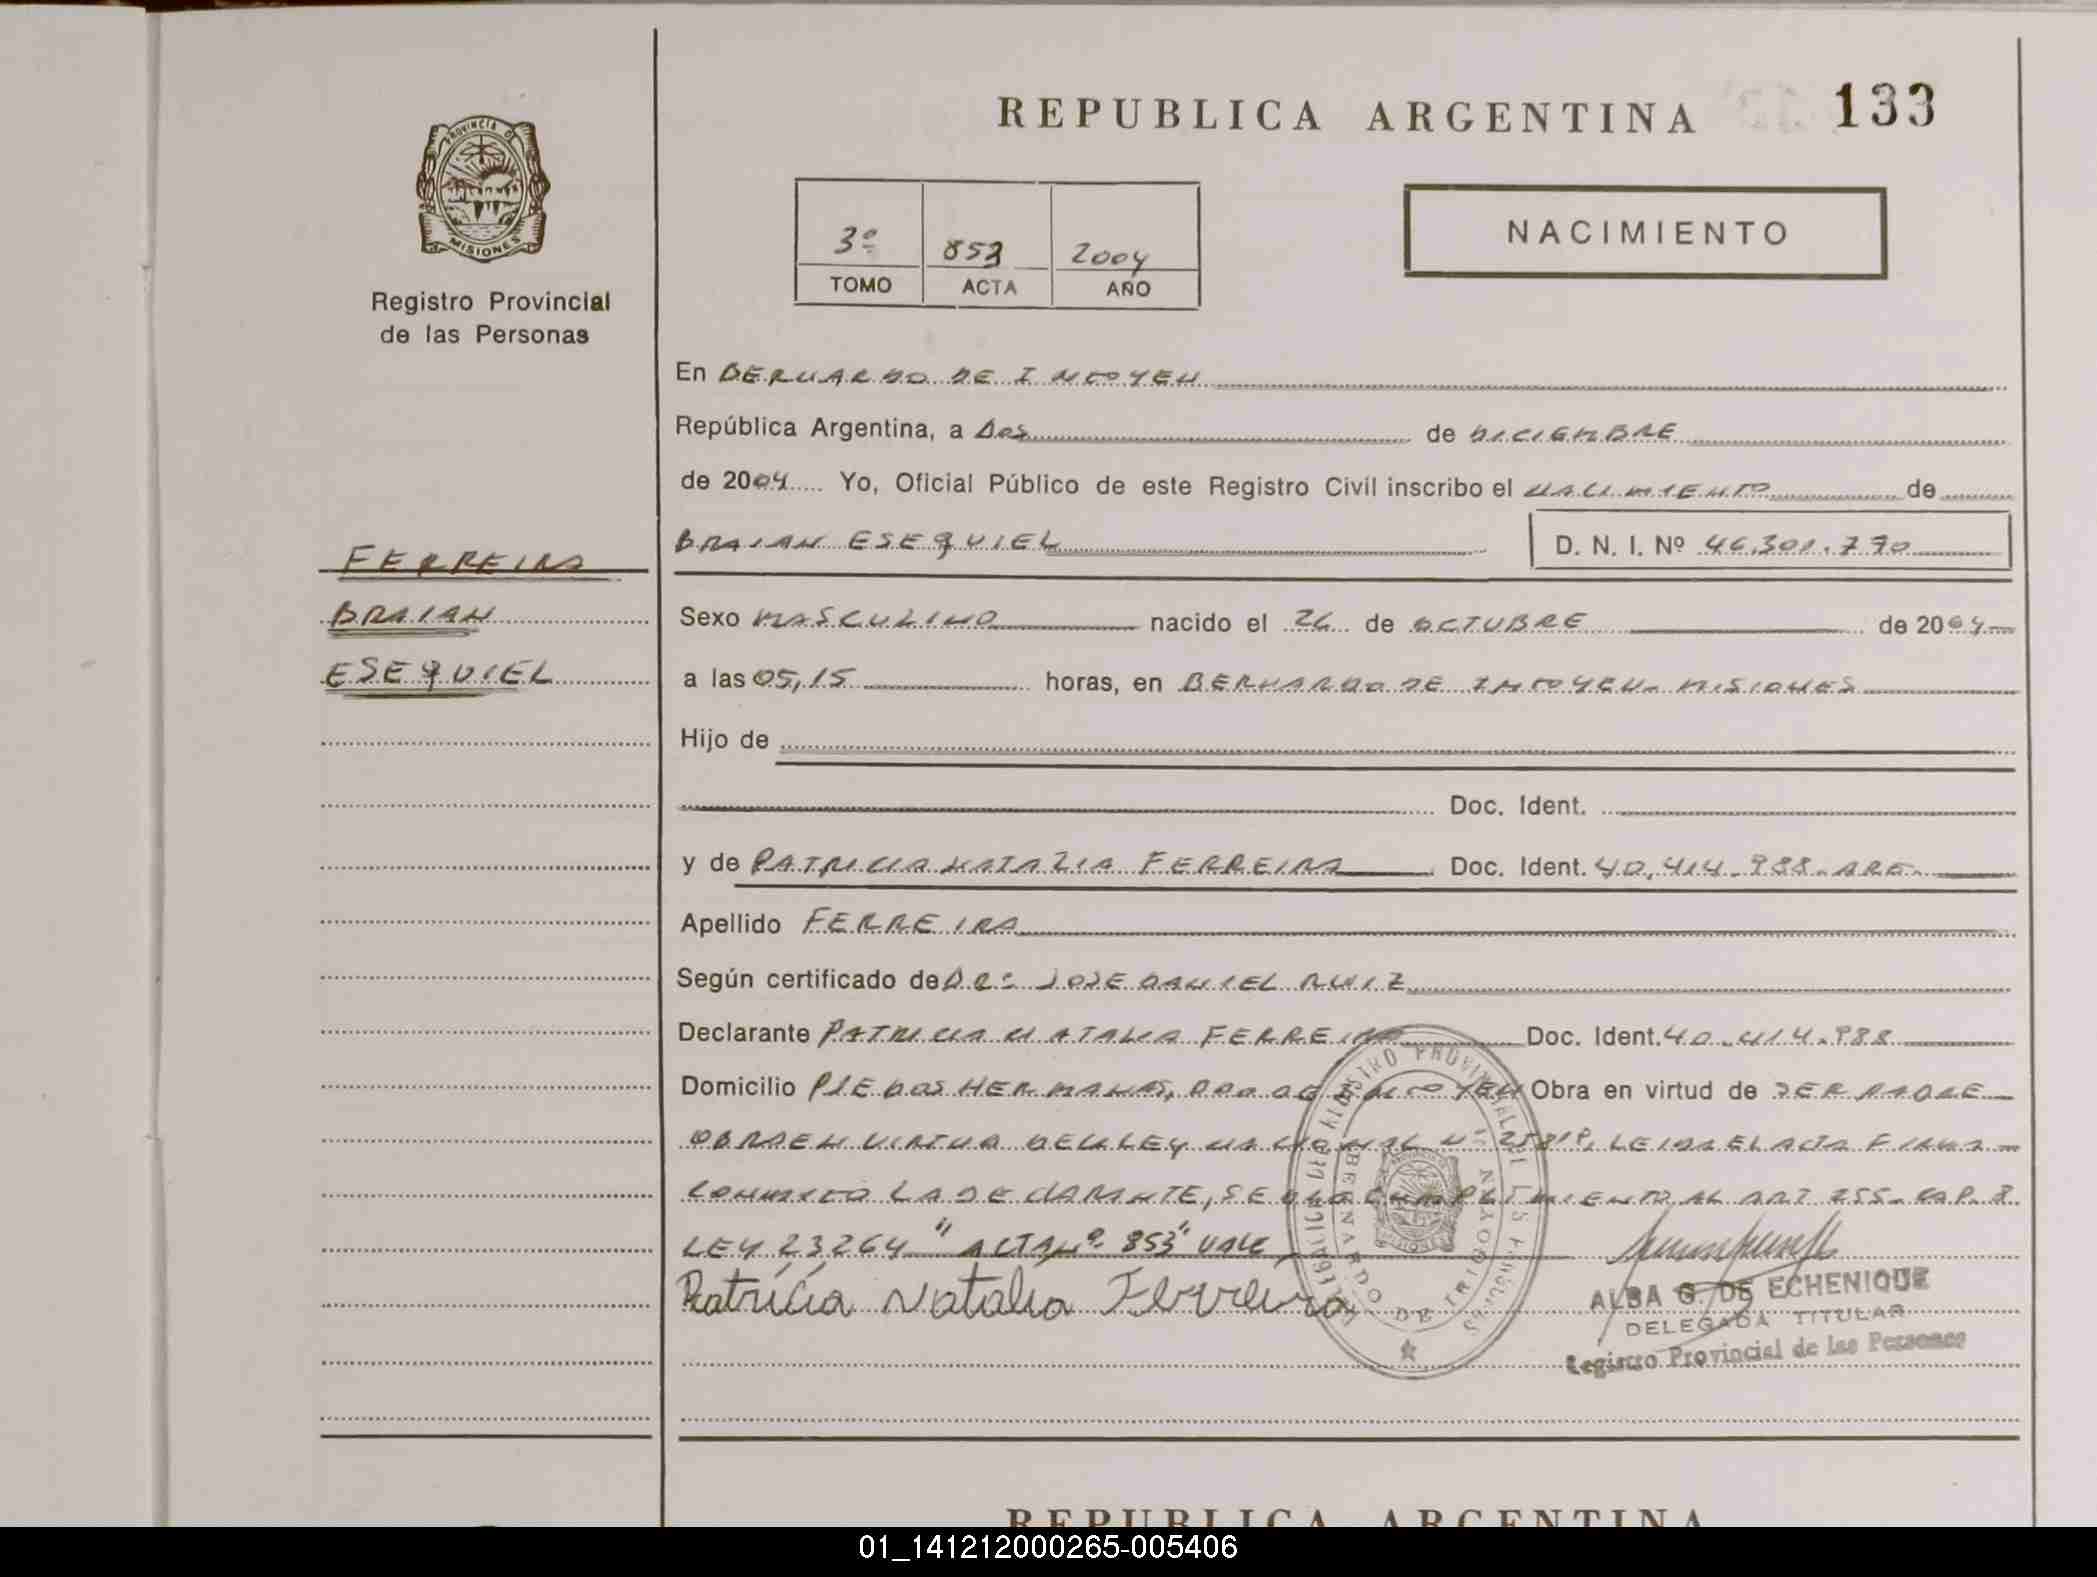 REPUBLICA ARGENTINA 133
PROVINCIA DE
MISIONES
Registro Provincial
de las Personas
3º 853 2004
TOMO ACTA AÑO
NACIMIENTO
En BERNARDO DE IRIGOYEN
República Argentina, a DOS de DICIEMBRE
de 2004 Yo, Oficial Público de este Registro Civil inscribo el NACIMIENTO de
BRAIAN ESEQUIEL D. N. I. Nº 46.301.790
FERREIRA
BRAIAN
ESEQUIEL
Sexo MASCULINO nacido el 26 de OCTUBRE de 2004
a las 05,15 horas, en BERNARDO DE IRIGOYEN - MISIONES
Hijo de
Doc. Ident.
y de PATRICIA NATALIA FERREIRA Doc. Ident. 40.414.988 - ARG.
Apellido FERREIRA
Según certificado de DR: JOSE DANIEL RUIZ
Declarante PATRICIA NATALIA FERREIRA Doc. Ident. 40.414.988
Domicilio PJE DOS HERMANAS, BDO DE IRIGOYEN Obra en virtud de SER MADRE
OBRA EN VIRTUD DE LA LEY NACIONAL Nº LEIDA EL ACTA FIRMA
CONMIGO LA DECLARANTE, SE DIO CUMPLIMIENTO AL ART 255 - CAP. 8
LEY 23264 "ACTA Nº 853" VALE
Patricia Natalia Ferreira
REGISTRO PROVINCIAL DE LAS PERSONAS
BERNARDO DE IRIGOYEN
ALBA G. DE ECHENIQUE
DELEGADA TITULAR
Registro Provincial de las Personas
REPUBLICA ARGENTINA
01_141212000265-005406